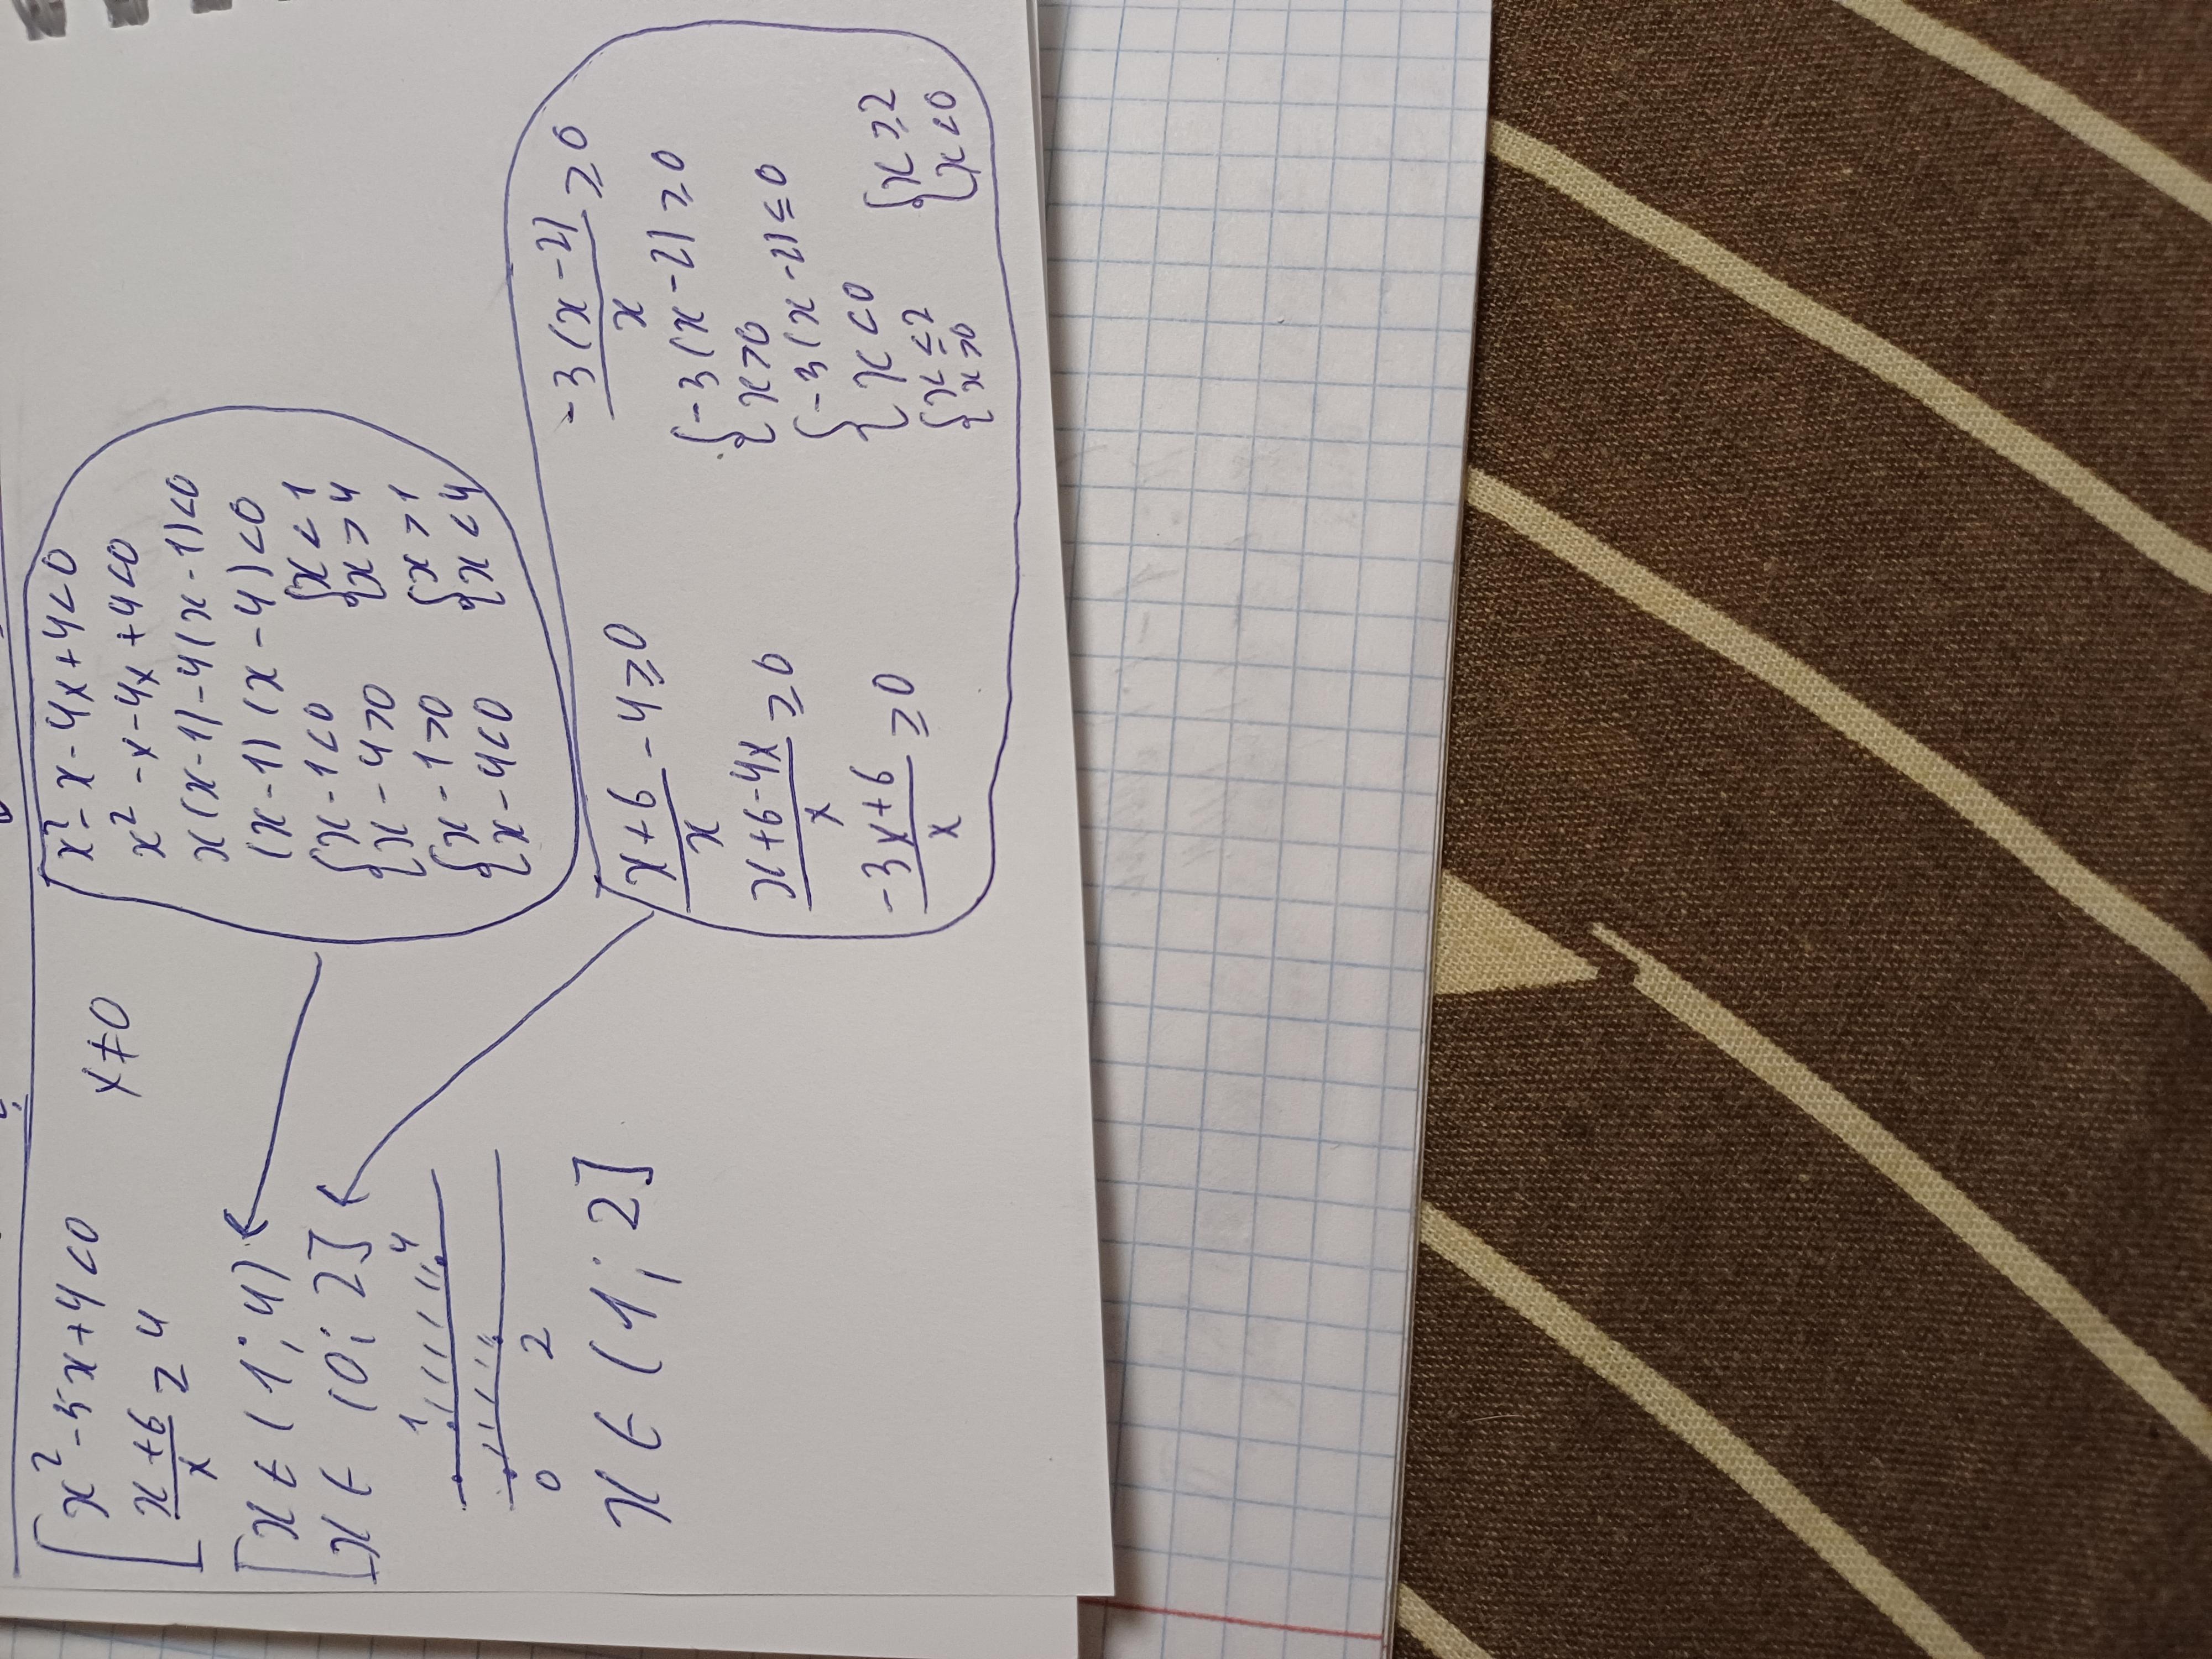 [ x² - 5x + 4 < 0
x+6/x ≥ 4
x ≠ 0
[ x ∈ (1; 4)
x ∈ (0; 2]
1 4
0 2
x ∈ (1; 2]
[ x² - x - 4x + 4 < 0
x² - x - 4x + 4 < 0
x(x-1) - 4(x-1) < 0
(x-1)(x-4) < 0
{ x-1 < 0
x-4 > 0
{ x < 1
x > 4
{ x-1 > 0
x-4 < 0
{ x > 1
x < 4
[ x+6/x - 4 ≥ 0
x+6-4x/x ≥ 0
-3x+6/x ≥ 0
-3(x-2)/x ≥ 0
{ -3(x-2) ≥ 0
x > 0
{ -3(x-2) ≤ 0
x < 0
{ x ≤ 2
x > 0
{ x ≥ 2
x < 0